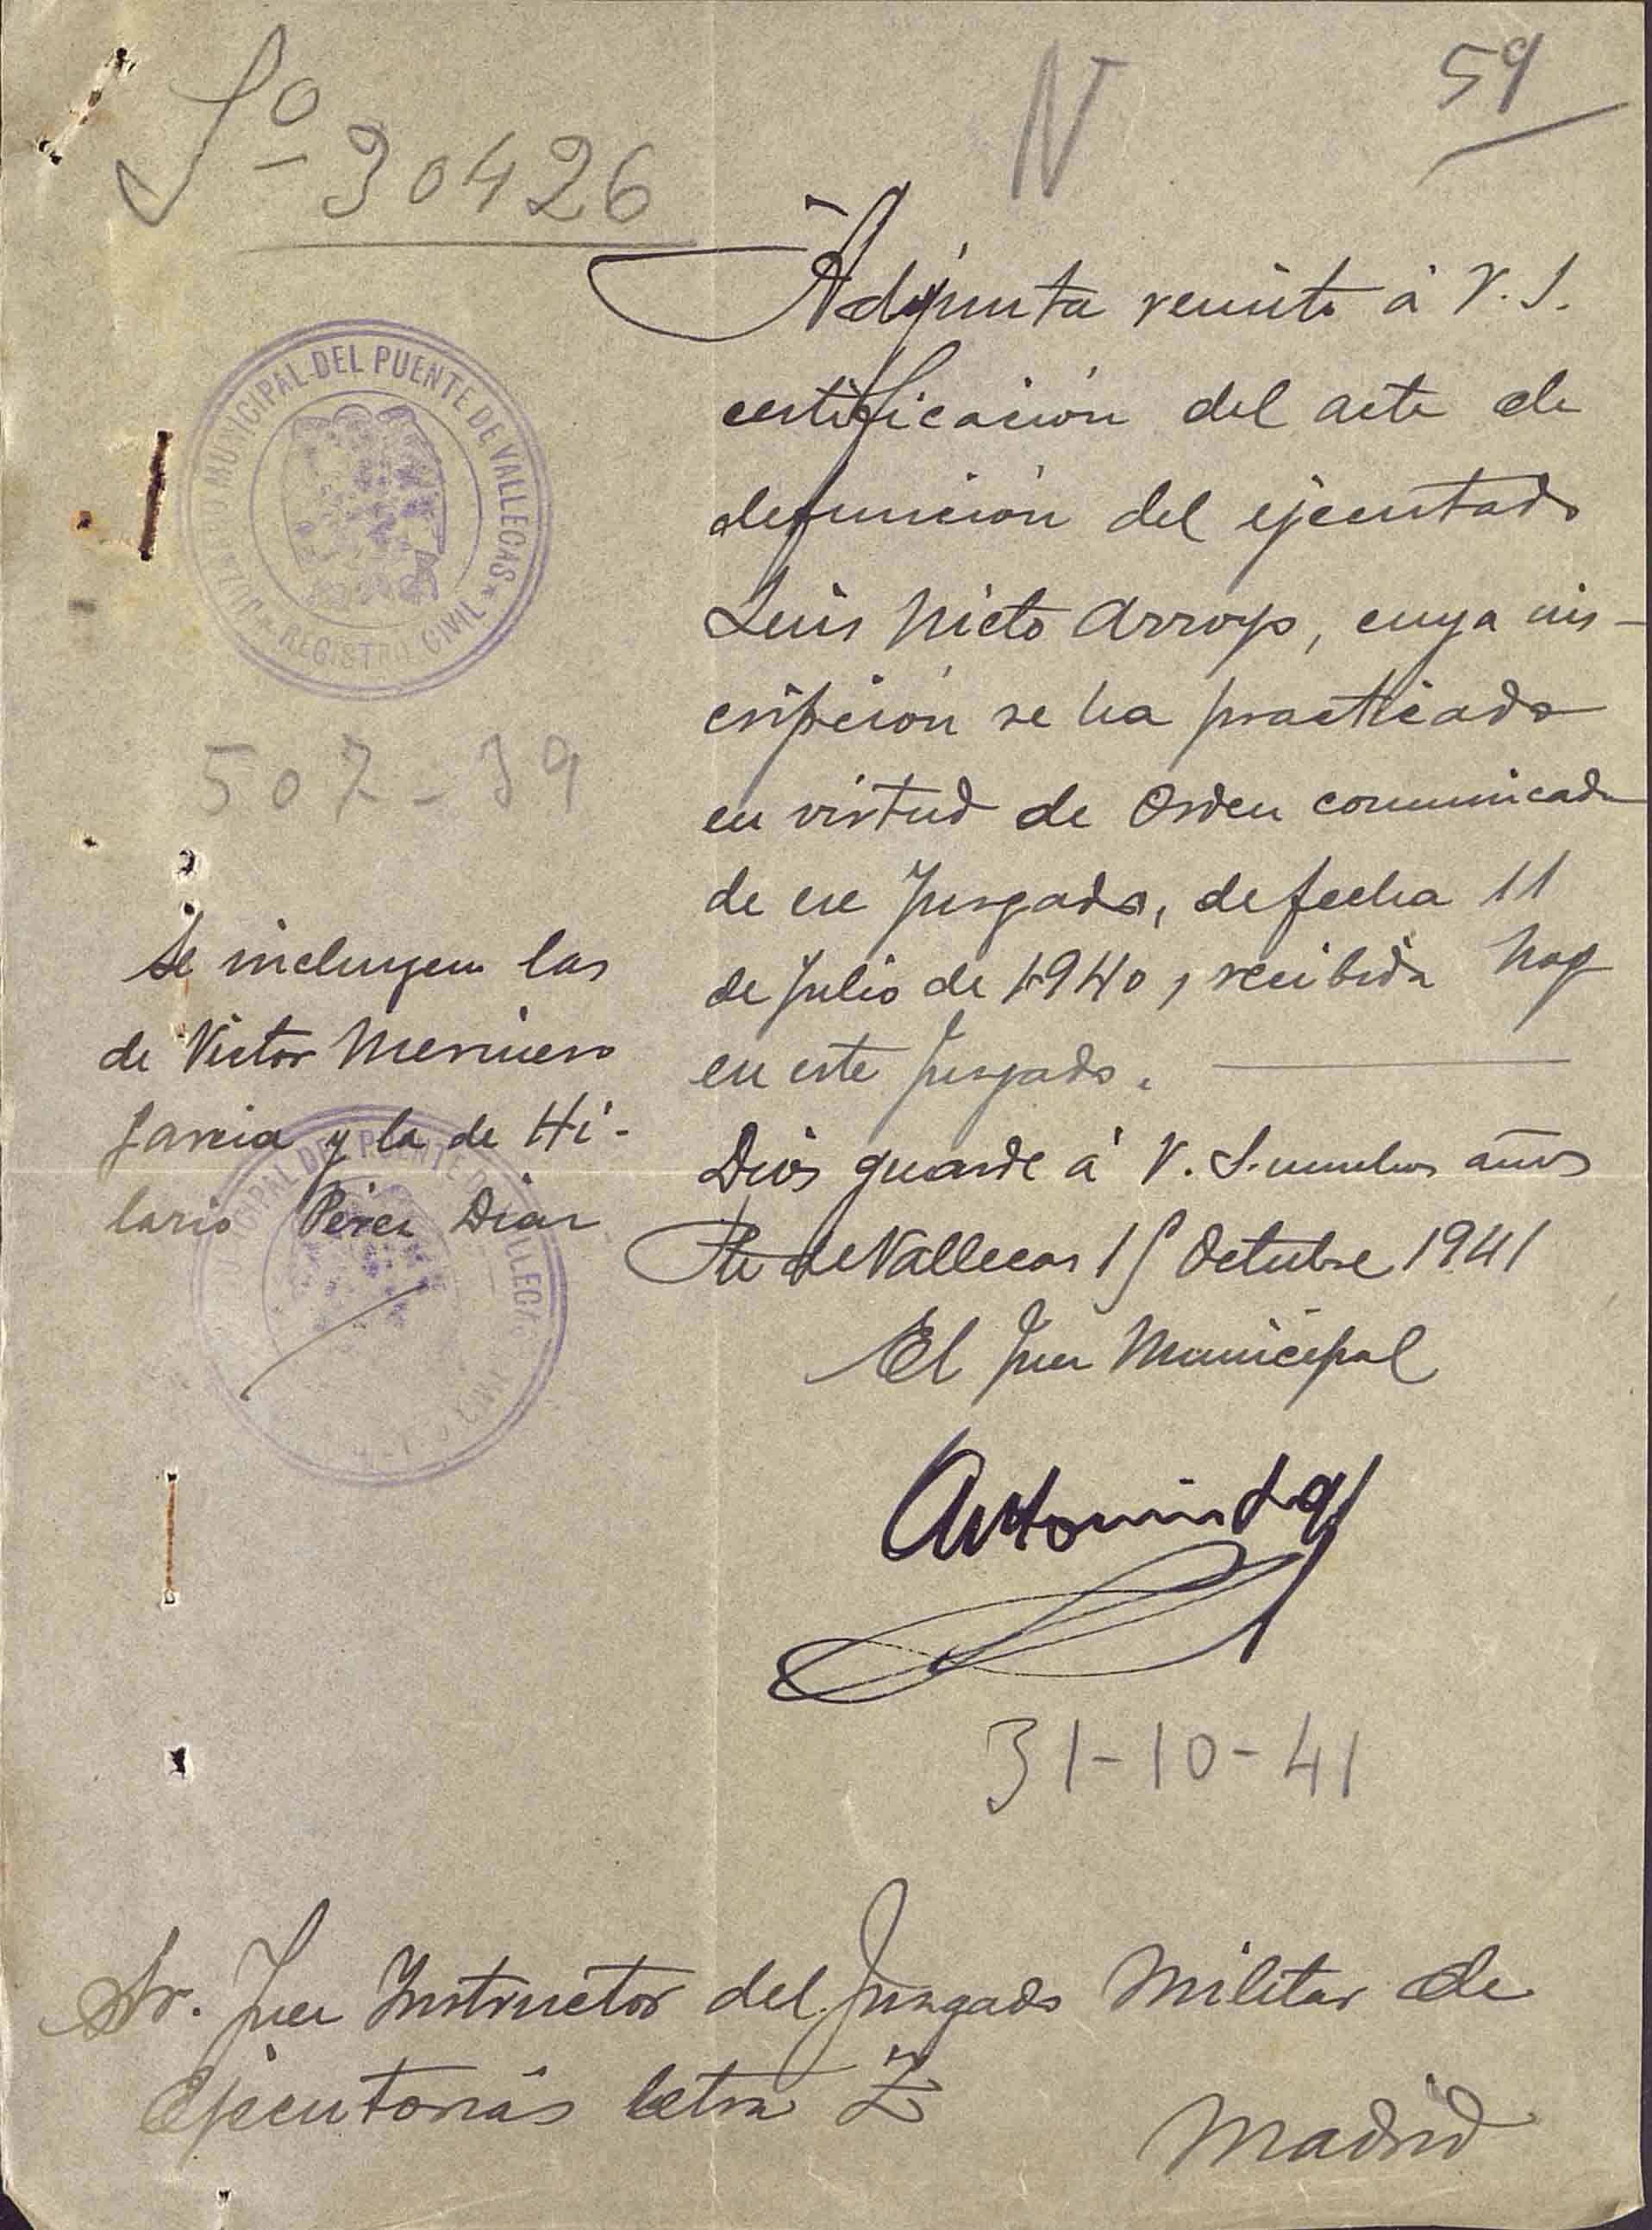 Sº 30426
N
59
Adjunta remito á V. S.
certificación del acta de
defunción del ejecutado
Luis Nieto Arroyo, cuya ins-
cripción se ha practicado
en virtud de Orden comunicada
de ese Juzgado, de fecha 11
de Julio de 1940, recibida hoy
en este Juzgado.
Dios guarde á V. S. muchos años
Pte de Vallecas 15 Octubre 1941
El Juez Municipal
31-10-41
JUZGADO MUNICIPAL DEL PUENTE DE VALLECAS
REGISTRO CIVIL
507-39
Se incluyen las
de Victor Merinero
Garcia y la de Hi-
lario Pérez Diaz
MUNICIPAL DEL PUENTE DE VALLECAS
Sr. Juez Instructor del Juzgado Militar de
Ejecutorias letra Z
Madrid